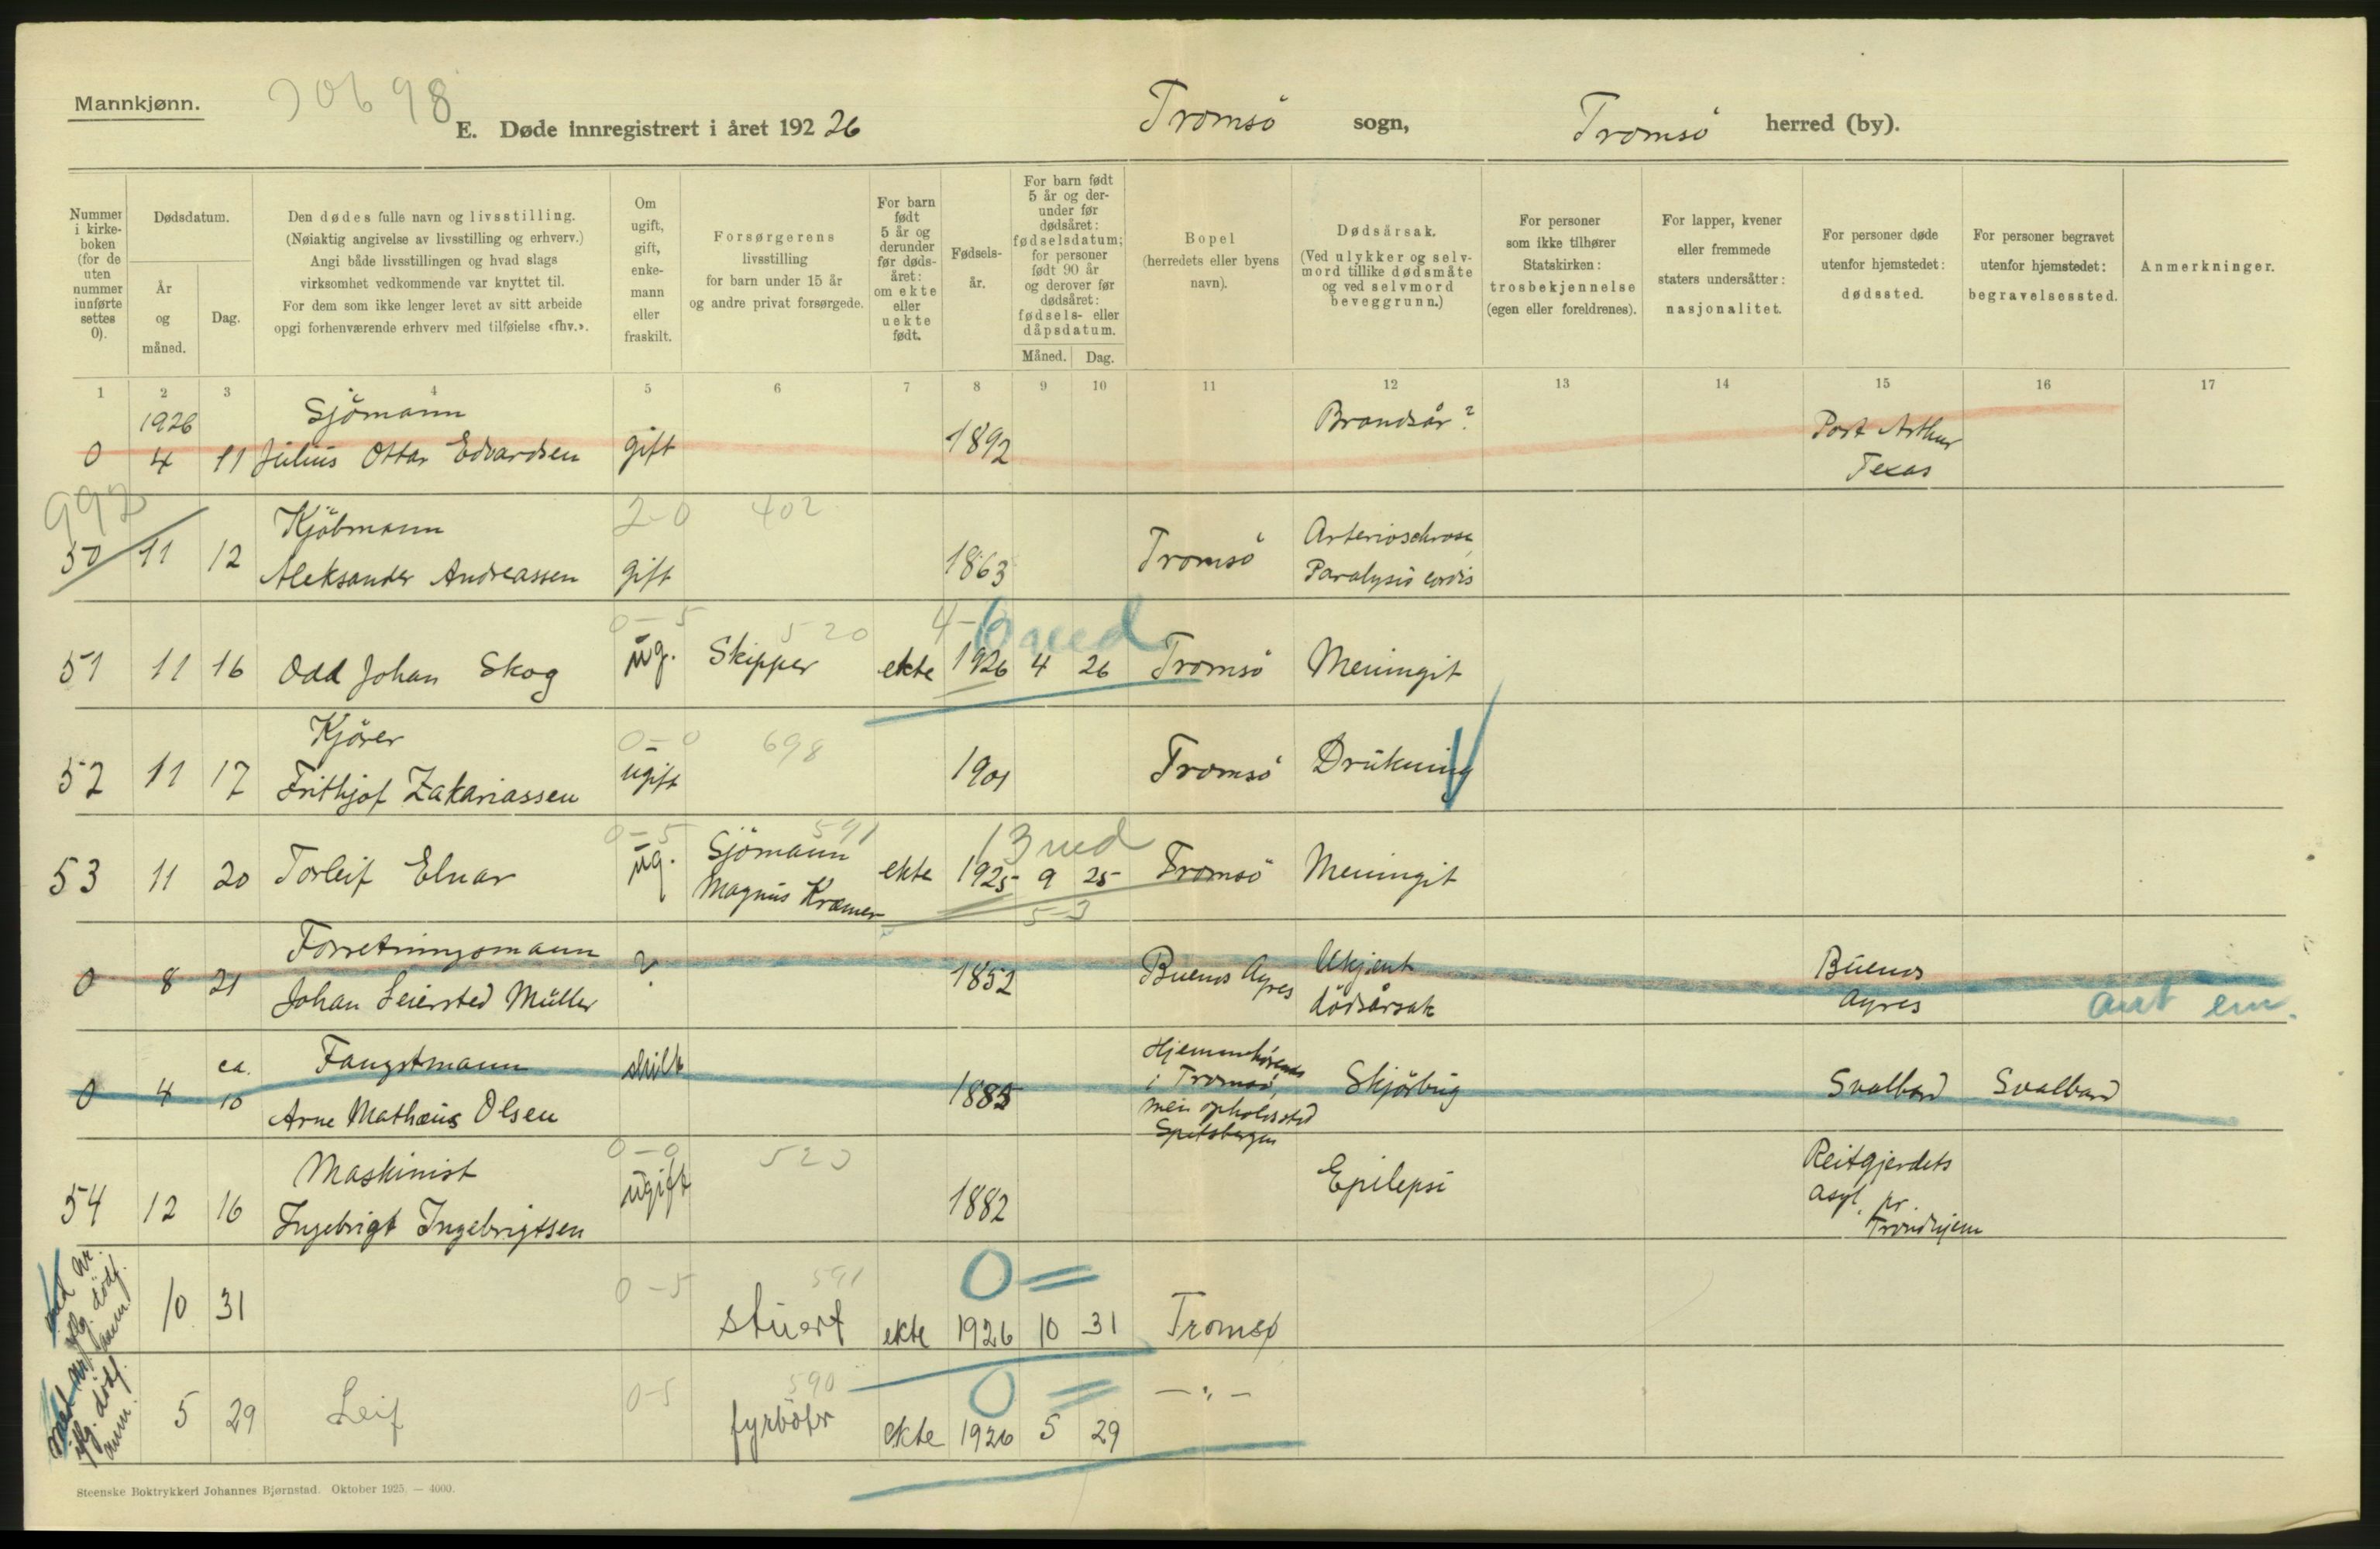 Mannkjønn.
70698
E. Døde innregistrert i året 192 26
Tromsö sogn, Tromsö herred (by).
Nummer i kirke-boken (for de uten nummer innførte settes 0).
Dødsdatum.
År og måned.
Dag.
Den dødes fulle navn og livsstilling.
(Nøiaktig angivelse av livsstilling og erhverv.)
Angi både livsstillingen og hvad slags
virksomhet vedkommende var knyttet til.
For dem som ikke lenger levet av sitt arbeide
opgi forhenværende erhverv med tilføielse «fhv.».
Om ugift, gift, enke-mann eller fraskilt.
Forsørgerens
livsstilling
for barn under 15 år
og andre privat forsørgede.
For barn født 5 år og derunder før døds-året: om ekte eller uekte født.
Fødsels-år.
For barn født 5 år og der-under før dødsåret: fødselsdatum; for personer født 90 år og derover før dødsåret: fødsels- eller dåpsdatum.
Måned. Dag.
Bopel
(herredets eller byens
navn).
Dødsårsak.
(Ved ulykker og selv-
mord tillike dødsmåte
og ved selvmord
beveggrunn.)
For personer
som ikke tilhører
Statskirken:
trosbekjennelse
(egen eller foreldrenes).
For lapper, kvener
eller fremmede
staters undersåtter:
nasjonalitet.
For personer døde
utenfor hjemstedet:
dødssted.
For personer begravet
utenfor hjemstedet:
begravelsessted.
Anmerkninger.
1 2 3 4 5 6 7 8 9 10 11 12 13 14 15 16 17
1926 Sjömann Brandsår? Port Arthur
0 4 11 Julius Ottar Edvardsen gift 1892 Texas
992 Kjöbmann 2-0 402 Arteriosclerose
50 11 12 Aleksander Andreassen gift 1863 Tromsö Paralysis cordis
0-5 520 4-6 med
51 11 16 Odd Johan Skog ug. Skipper ekte 1926 4 26 Tromsö Meningit
Kjörer 0-0 698
52 11 17 Frithjof Zakariassen ugift 1901 Tromsö Drukning
0-5 591 13 med
53 11 20 Torleif Elnar ug. Sjömann ekte 1925 9 25 Tromsö Meningit
Magnus Kræmer 5-3
Forretningsmann Ukjent Buenos
0 8 21 Johan Leiersted Müller ? 1852 Buenos Ayres dödsårsak Ayres
ca. Fangstmann Hjemmehörende
0 4 10 Arne Mathæus Olsen skilt 1885 i Tromsö, Skjörbug Svalbard Svalbard
men opholdssted
Spitsbergen
Maskinist 0-0 523 Reitgjerdets
54 12 16 Ingebrigt Ingebrigtsen ugift 1882 Epilepsi asyl, pr.
Trondhjem
0-5 591 0
10 31 stuert ekte 1926 10 31 Tromsø
0-5 590 0
5 29 Leif fyrböter ekte 1926 5 29 — " —
Steenske Boktrykkeri Johannes Bjørnstad. Oktober 1925. — 4000.